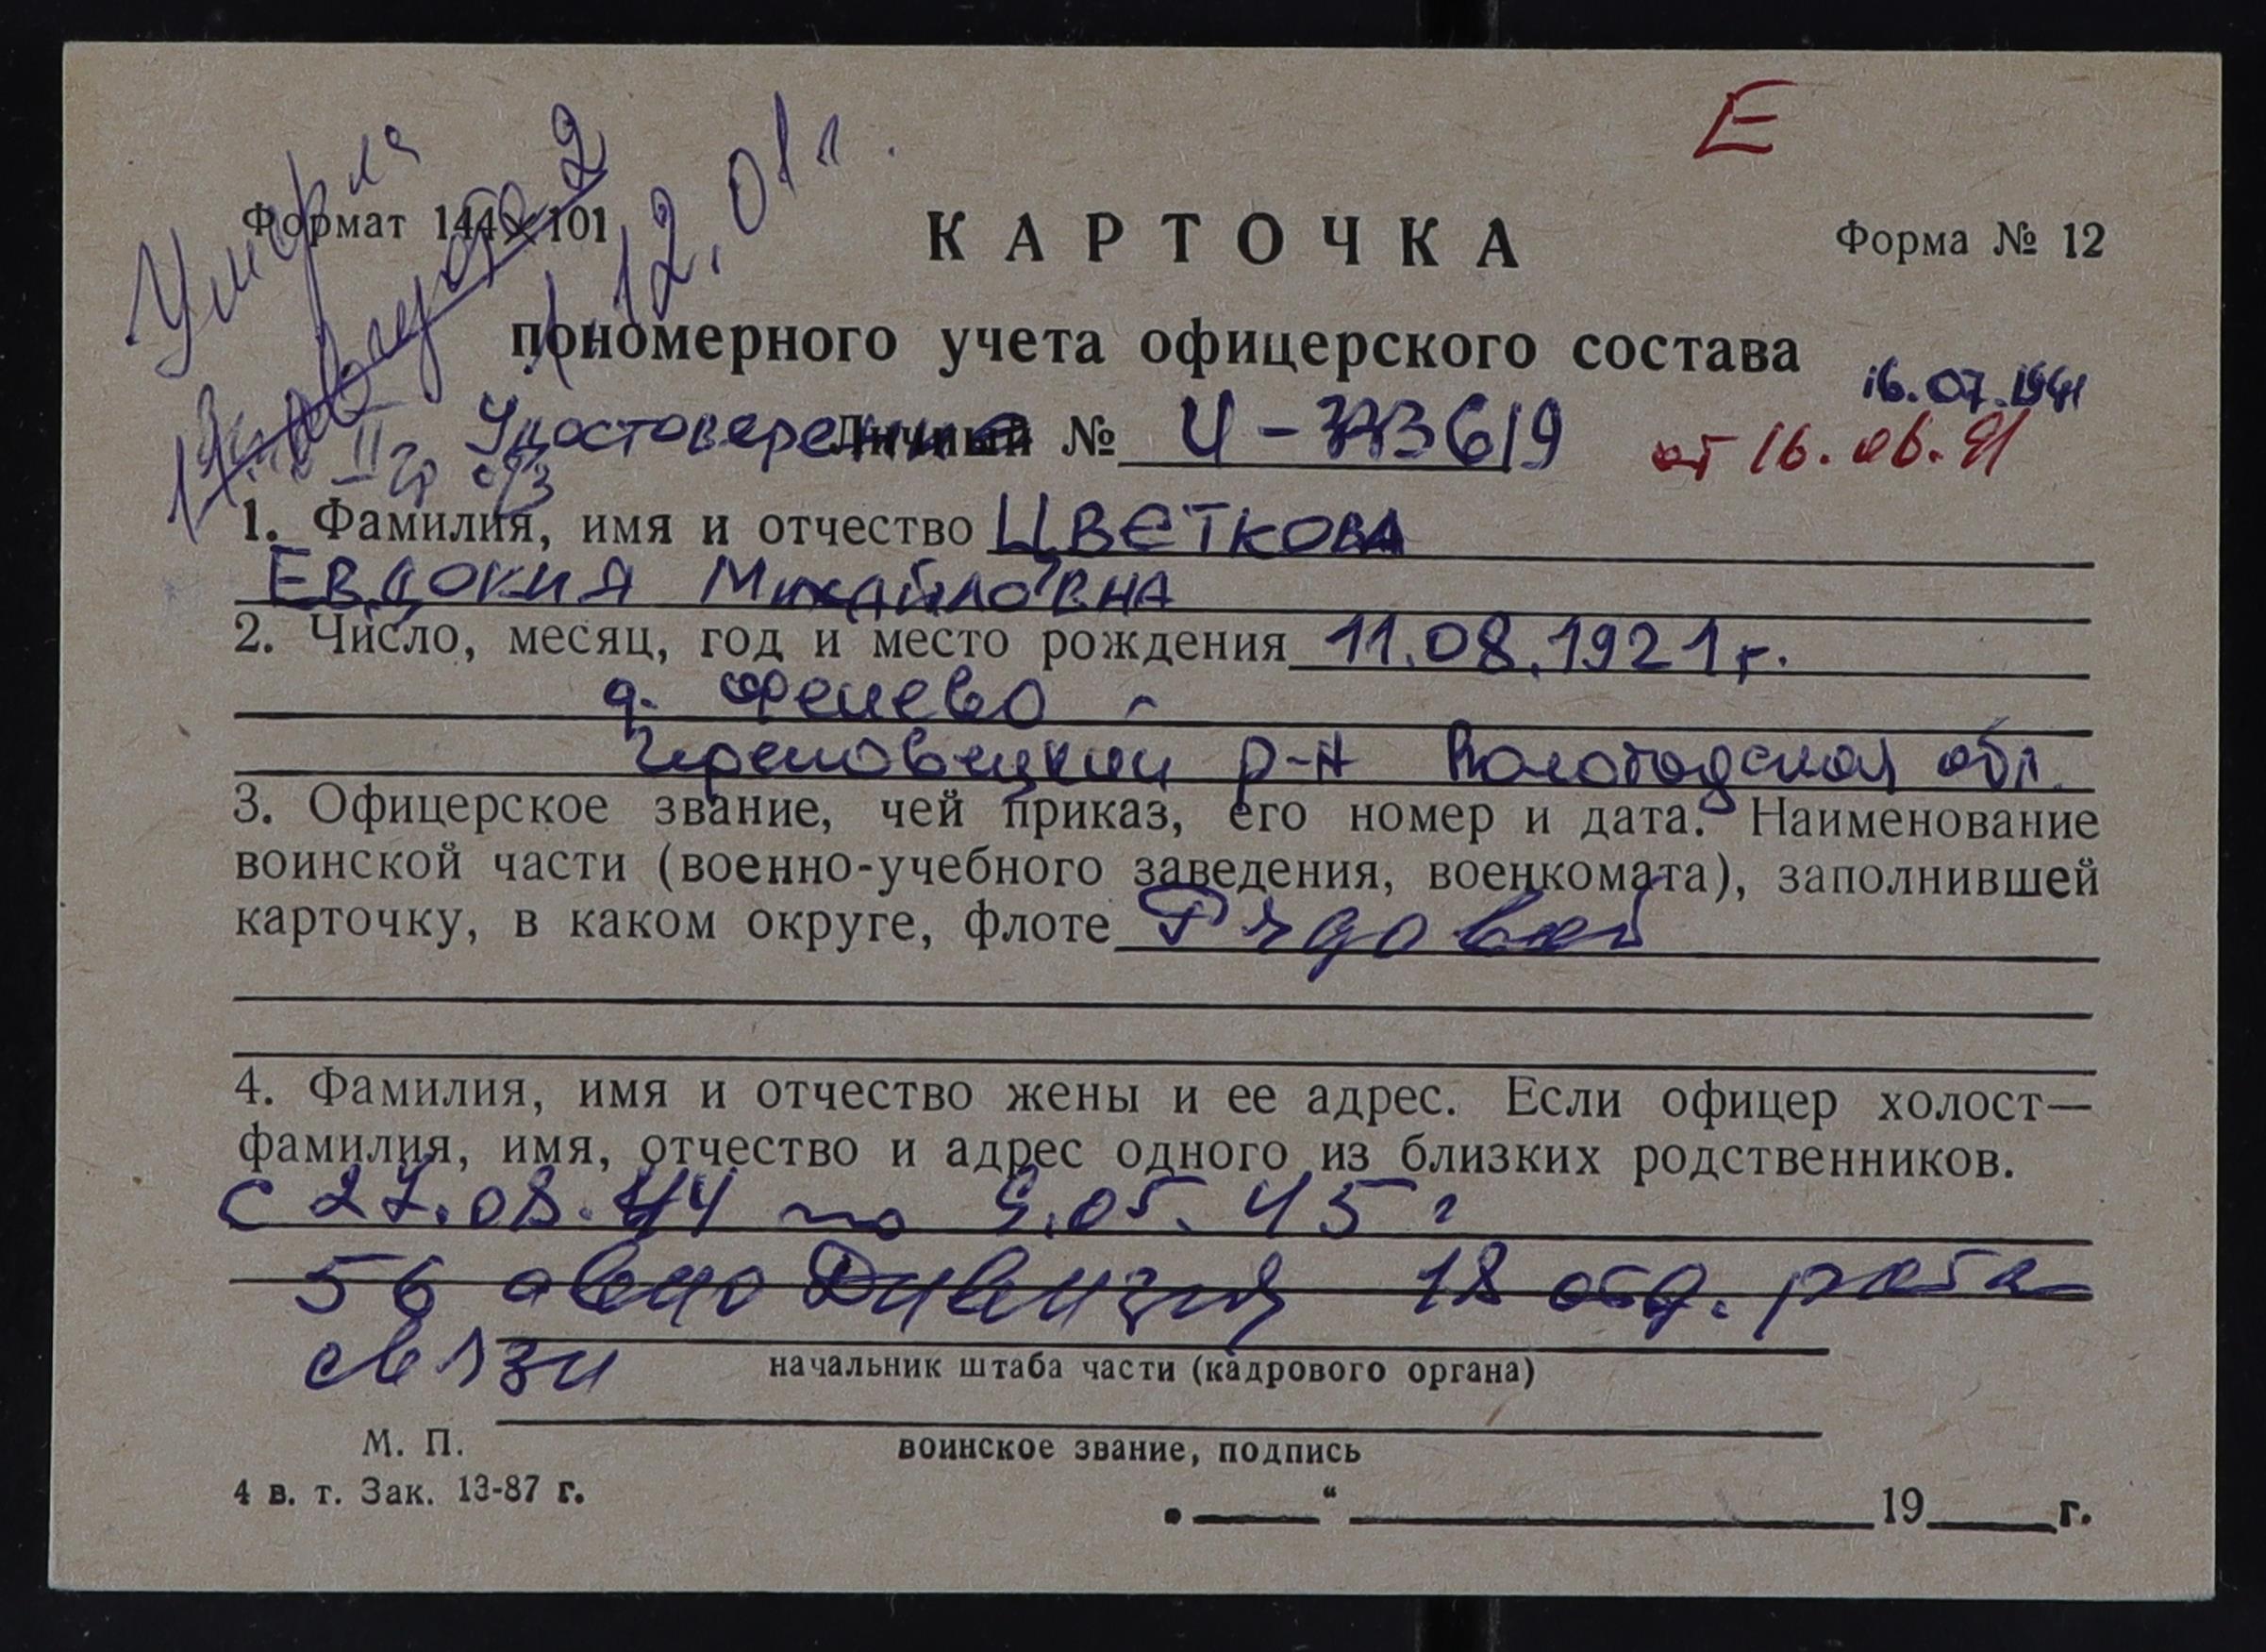 Е
Умерла
1.12.01 г.
Формат 144×101
КАРТОЧКА
Форма № 12
пономерного учета офицерского состава
16.07.1941
II гр
Удостоверение Личный № Ч - 773619 от 16.06.91
1. Фамилия, имя и отчество ЦВЕТКОВА
ЕВДОКИЯ МИХАЙЛОВНА
2. Число, месяц, год и место рождения 11.08.1921 г.
д.
Череповецкий р-н Вологодская обл.
3. Офицерское звание, чей приказ, его номер и дата. Наименование
воинской части (военно-учебного заведения, военкомата), заполнившей
карточку, в каком округе, флоте Рядовой
4. Фамилия, имя и отчество жены и ее адрес. Если офицер холост—
фамилия, имя, отчество и адрес одного из близких родственников.
с 27.08.44 по 9.05.45 г
56 авио Дивизия 18 отд. рота
связи
начальник штаба части (кадрового органа)
М. П.
воинское звание, подпись
4 в. т. Зак. 13-87 г.
„ “ 19 г.